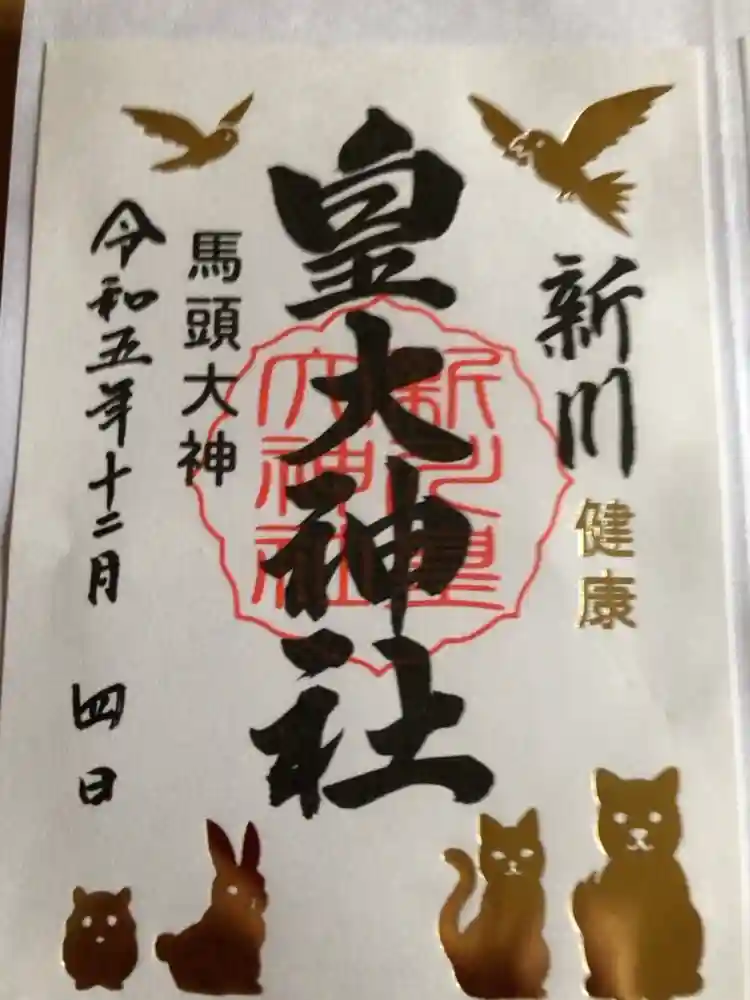 新川
健康
皇大神社
新川皇
大神社
馬頭大神
令和五年十二月 四日